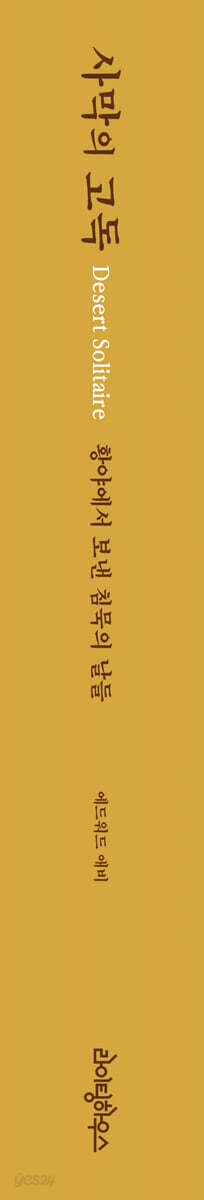 사막의 고독 Desert Solitaire
황야에서 보낸 침묵의 날들
에드워드 애비
라이팅하우스
yes24